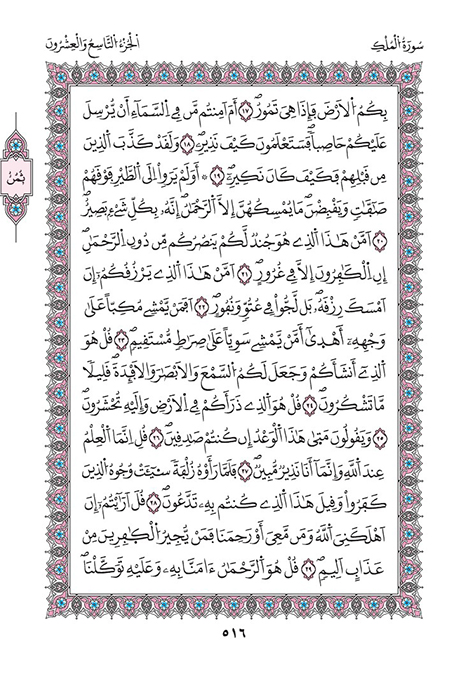 سُورَةُ الْمُلْكِ
الْجُزْءُ التَّاسِعُ وَالْعِشْرُونَ
ثُمُنٌ
بِكُمُ الْأَرْضَ فَإِذَا هِيَ تَمُورُ ١٧ أَمَ امِنتُم مَّن فِي السَّمَآءِ انْ يُّرْسِلَ
عَلَيْكُمْ حَاصِباً فَسَتَعْلَمُونَ كَيْفَ نَذِيرِ ١٨ وَلَقَدْ كَذَّبَ الذِينَ
مِن قَبْلِهِمْ فَكَيْفَ كَانَ نَكِيرِ ١٩ أَوَلَمْ يَرَوِاْ اِلَى الطَّيْرِ فَوْقَهُمْ
صَٰٓفَّٰتٍ وَيَقْبِضْنَ مَا يُمْسِكُهُنَّ إِلَّا الرَّحْمَٰنُ إِنَّهُۥ بِكُلِّ شَےْءٍ بَصِيرٌ
٢٠ اَمَّنْ هَٰذَا الذِے هُوَ جُندٌ لَّكُمْ يَنصُرُكُم مِّن دُونِ الرَّحْمَٰنِ
إِنِ الْكَٰفِرُونَ إِلَّا فِے غُرُورٍ ٢١ اَمَّنْ هَٰذَا الذِے يَرْزُقُكُمُۥٓ إِنَ
اَمْسَكَ رِزْقَهُۥ بَل لَّجُّواْ فِے عُتُوٍّ وَنُفُورٍ ٢٢ اَفَمَنْ يَّمْشِے مُكِبّاً عَلَىٰ
وَجْهِهِۦٓ أَهْدَىٰٓ أَمَّنْ يَّمْشِے سَوِيّاً عَلَىٰ صِرَٰطٍ مُّسْتَقِيمٍ ٢٣ قُلْ هُوَ
الذِےٓ أَنشَأَكُمْ وَجَعَلَ لَكُمُ السَّمْعَ وَالْأَبْصَٰرَ وَالْأَفْـِٔدَةَ قَلِيلاً
مَّا تَشْكُرُونَ ٢٤ قُلْ هُوَ الذِے ذَرَأَكُمْ فِے الْأَرْضِ وَإِلَيْهِ تُحْشَرُونَ
٢٥ وَيَقُولُونَ مَتَىٰ هَٰذَا الْوَعْدُ إِن كُنتُمْ صَٰدِقِينَ ٢٦ قُلِ اِنَّمَا الْعِلْمُ
عِندَ اَللَّهِ وَإِنَّمَآ أَنَا نَذِيرٌ مُّبِينٌ ٢٧ فَلَمَّا رَأَوْهُ زُلْفَةً سِيٓـَٔتْ وُجُوهُ الذِينَ
كَفَرُواْ وَقِيلَ هَٰذَا الذِے كُنتُم بِهِۦ تَدَّعُونَ ٢٨ قُلَ اَرَآيْتُمُۥٓ إِنَ
اَهْلَكَنِيَ اَللَّهُ وَمَن مَّعِيَ أَوْ رَحِمَنَا فَمَنْ يُّجِيرُ الْكَٰفِرِينَ مِنْ
عَذَابٍ اَلِيمٍ ٢٩ قُلْ هُوَ الرَّحْمَٰنُ ءَامَنَّا بِهِۦ وَعَلَيْهِ تَوَكَّلْنَا
٥١٦